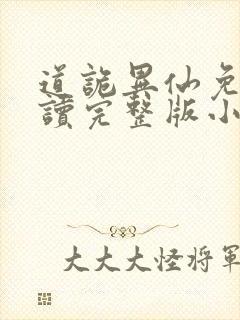 道詭異仙免
讀完整版小
大大大怪将軍